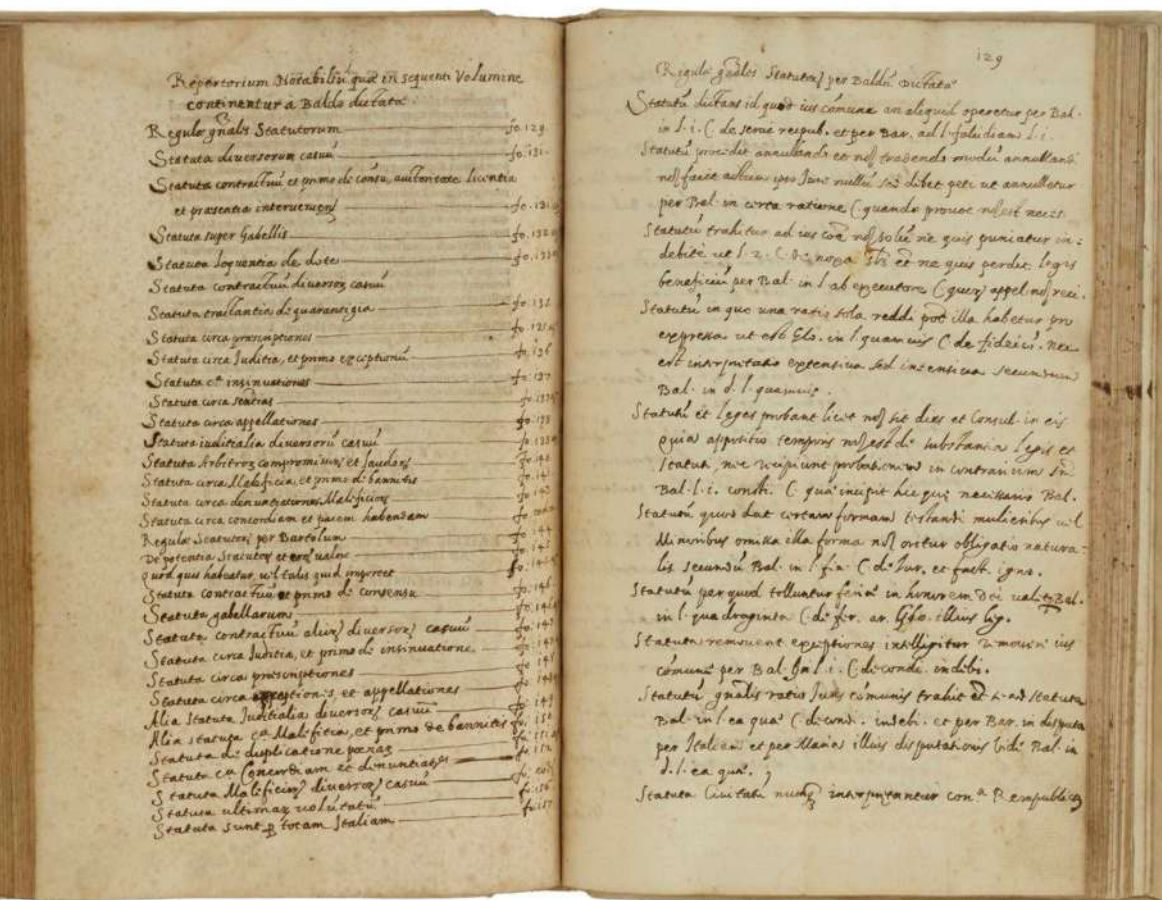 Repertorium Notabiliũ quæ in sequenti Volumine
continentur a Baldo dictata
Regulæ gñalis Statutorum fo. 129.
Statuta diversorum casuũ fo. 131.
Statuta contractuũ et primo de consu, auctoritate licentia
et præsentia fo. 131
Statuta super Gabellis fo. 132
Statuta loquentia de dote fo. 133
Statuta contractuũ diversoꝝ casuũ
Statuta tractantia de quarantigia fo. 135
Statuta circa præscriptiones fo. 135
Statuta circa Juditia, et primo exceptionũ fo. 136
Statuta cᵃ insinuationes fo. 137
Statuta circa sentias fo. 137
Statuta circa appellationes fo. 138
Statuta iuditialia diversorũ casuũ fo. 138
Statuta Arbitroꝝ compromissis et laudoꝝ fo.
Statuta circa Maleficia, et primo de bannitis fo.
Statuta circa denuntiationes Maleficioꝝ fo.
Statuta circa concordiam et pacem habendam fo.
Regulæ Statutoꝝ per Bartolum fo. 144
De potentia Statutoꝝ et eoꝝ valore fo. 145
quod quis habeatur, vel talis quid importet fo.
Statuta contractuũ et primo de consensu fo. 146
Statuta gabellarum fo. 146
Statuta contractuũ alioꝝ diversoꝝ casuũ fo. 147
Statuta circa Juditia, et primo de insinuatione fo. 147
Statuta circa præscriptiones fo.
Statuta circa exceptiones, et appellationes fo.
Alia Statuta Juditialia diversoꝝ casuũ fo. 149
Alia statuta cᵃ Malefitia, et primo de bannitis fo. 150
Statuta de duplicatione pœnæ fo. 151
Statuta cᵃ Concordiam et denuntiatioẽs fo. 152
Statuta Maleficioꝝ diversoꝝ casuũ fo.
Statuta ultimaꝝ volũtatũ fo. 156
Statuta sunt ꝑ totam Italiam fo. 157
129
Regulæ gñales Statutoꝝ per Baldũ Dictatæ
Statutũ dictans id quod ius cõmune an aliquid operetur per Bal.
in l. i. C. de servis reipub. et per Bar. ad l. falcidiam l. i.
Statutũ procedit annullando et nõ tradendo modũ annullandi
nõ facit actum ipso Jure nullũ sed debet peti ut annulletur
per Bal. in certa ratione C. quando provoc. nõ est necess.
Statutũ trahitur ad ius coẽ nõ solũ ne quis puniatur in:
debitè ut l. 2. C. de noxa sed et ne quis perdat legis
beneficiũ per Bal. in l. ab executore C. quoꝝ appel. nõ reci.
Statutũ in quo una ratio sola reddi pot illa habetur pro
expressa ut est Glo. in l. quamvis C. de fideicõ. nec
est interpretatio extensiva sed intensiva secundum
Bal. in d. l. quamvis.
Statuta et leges probant licet nõ sit dies et Consul in eis
quia appositio temporis nõ est de substantia legis et
statuti, nec recipiunt probationem in contrarium
Bal. l. i. consti. C. quæ incipit hæc quæ necessario Bal.
Statutũ quod dat certam formam testandi mulieribus vel
Minoribus omissa illa forma nõ oritur obligatio natura:
lis secundũ Bal. in l. fin. C. de Jur. et fact. igno.
Statutũ per quod tolluntur feriæ in honorem Dei valet Bal.
in l. quadraginta C. de fer. ar. Glo. illius leg.
Statuta removent exceptiones intelligitur removere ius
cõmune per Bal. in l. i. C. de condi. indebi.
Statutũ gñalis ratio Juris cõmunis trahit et ad statuta
Bal. in l. ea quæ C. de condi. indebi. et per Bar. in disputa
per Italiam et per Materia illius disputationis vide Bal. in
d. l. ea quæ.
Statuta Civitatũ nunqꝫ interpretantur conᵃ Rempublicã